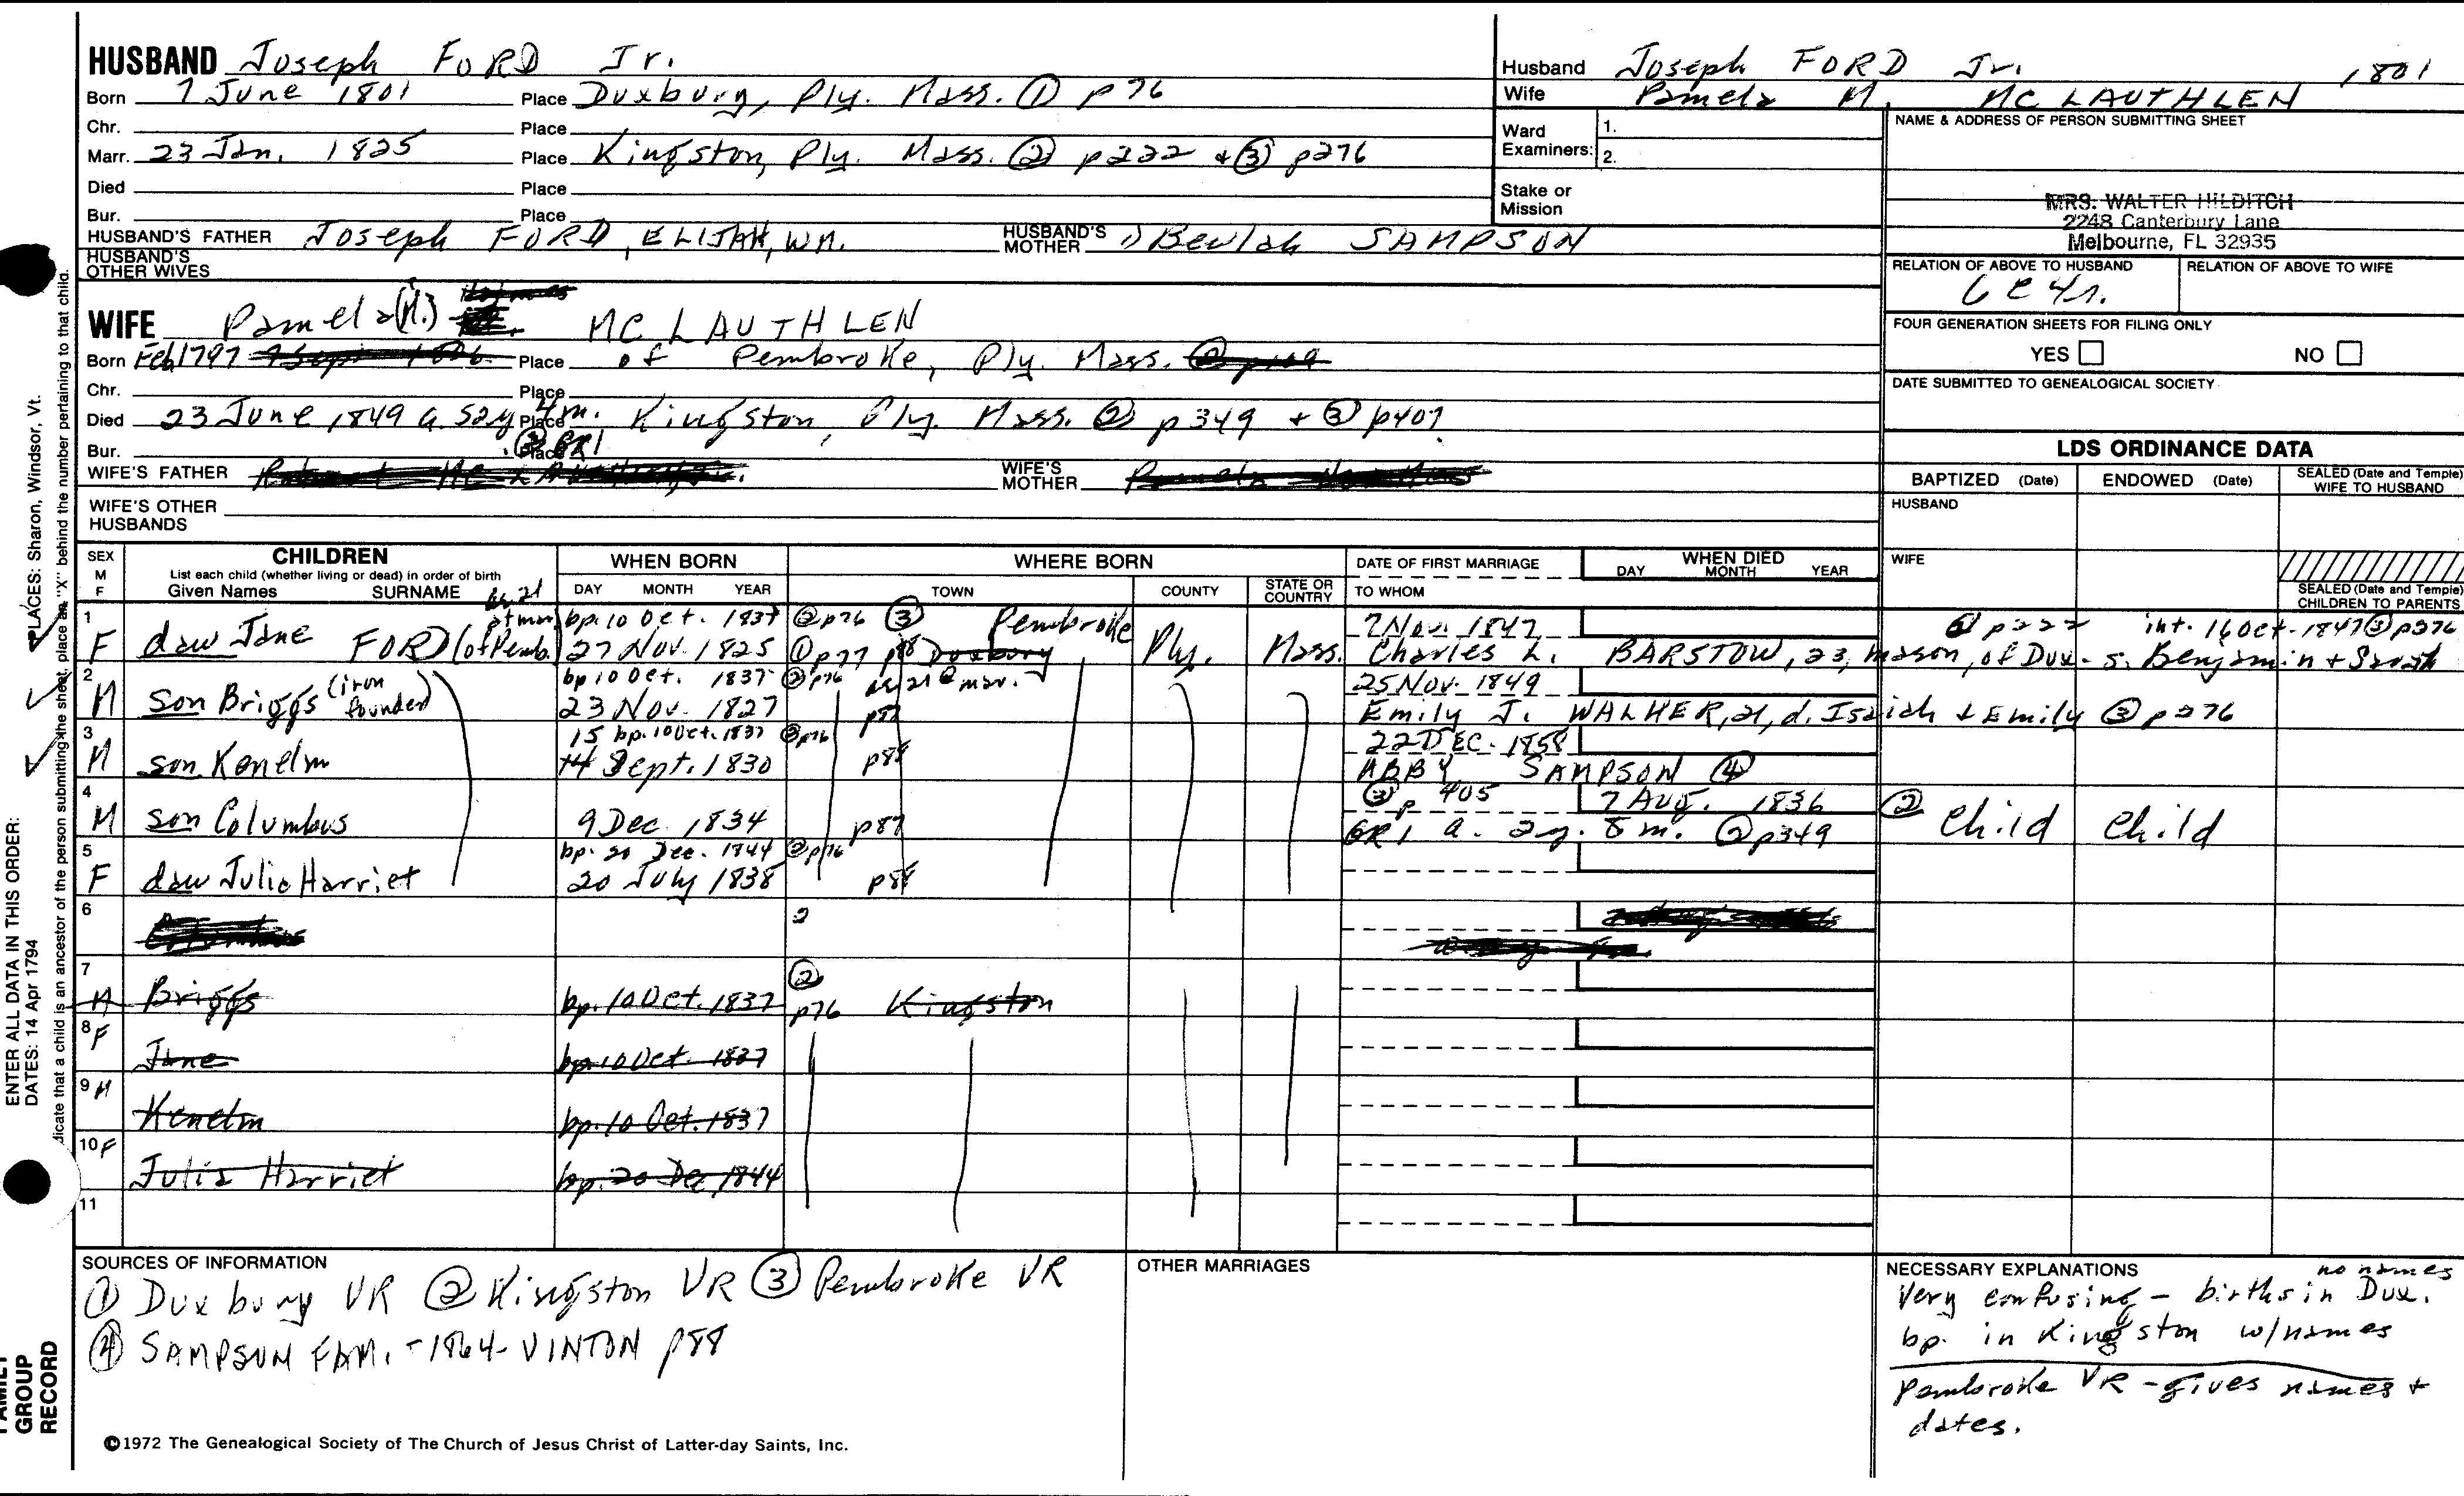 HUSBAND Joseph FORD Jr.
Born 7 June 1801 Place Duxbury, Ply. Mass. ① p 76
Chr. Place
Marr. 23 Jan. 1825 Place Kingston, Ply. Mass. ② p222 + ③ p276
Died Place
Bur. Place
HUSBAND'S FATHER Joseph FORD, ELIJAH, WM. HUSBAND'S MOTHER 1) Beulah SAMPSON
HUSBAND'S OTHER WIVES
Husband Joseph FORD Jr. 1801
Wife Pamela M. MC LAUTHLEN
Ward Examiners: 1.
2.
Stake or Mission
NAME & ADDRESS OF PERSON SUBMITTING SHEET
MRS. WALTER HILDITCH
2248 Canterbury Lane
Melbourne, FL 32935
RELATION OF ABOVE TO HUSBAND RELATION OF ABOVE TO WIFE
6C4r.
FOUR GENERATION SHEETS FOR FILING ONLY
YES NO
DATE SUBMITTED TO GENEALOGICAL SOCIETY
WIFE Pamela (M.) MC LAUTHLEN
Born Feb 1797 Place of Pembroke, Ply. Mass.
Chr. Place
Died 23 June 1849 a. 52y 4m. Place Kingston, Ply. Mass. ② p349 + ③ p407
Bur. Place ③ GR1
WIFE'S FATHER WIFE'S MOTHER
WIFE'S OTHER HUSBANDS
LDS ORDINANCE DATA
BAPTIZED (Date) ENDOWED (Date) SEALED (Date and Temple) WIFE TO HUSBAND
HUSBAND
WIFE
SEALED (Date and Temple) CHILDREN TO PARENTS
SEX M F CHILDREN WHEN BORN WHERE BORN DATE OF FIRST MARRIAGE WHEN DIED
List each child (whether living or dead) in order of birth
Given Names SURNAME DAY MONTH YEAR TOWN COUNTY STATE OR COUNTRY TO WHOM DAY MONTH YEAR
ae. 21
1 at mar. bp. 10 Oct. 1837 ② p76 ③ Pembroke 7 Nov. 1847 p222 int. 16 Oct. 1847 ③ p276
F daw Jane FORD (of Pemb.) 27 Nov. 1825 ① p77 p88 Duxbury Ply. Mass. Charles L. BARSTOW, 23, mason, of Dux. s. Benjamin + Sarah
2 bp 10 Oct. 1837 ② p76 ae 21 @ mar. 25 Nov. 1849
M son Briggs (iron founder) 23 Nov. 1827 p87 Emily J. WALKER, 21, d. Isaiah + Emily ③ p276
3 15 bp. 10 Oct. 1837 ② p76 22 DEC. 1858
M son Kenelm 14 Sept. 1830 p88 ABBY SAMPSON ④
4 ③ p 405 7 Aug. 1836 ② Child Child
M son Columbus 9 Dec. 1834 p87 GR1 a. 2y. 8 m. ② p349
5 bp. 20 Dec. 1844 ② p76
F daw Julia Harriet 20 July 1838 p88
6 2
7 ②
M Briggs bp. 10 Oct. 1837 p76 Kingston
8 F Jane bp. 10 Oct. 1837
9 M Kenelm bp. 10 Oct. 1837
10 F Julia Harriet bp. 20 Dec 1844
11
SOURCES OF INFORMATION
① Duxbury VR ② Kingston VR ③ Pembroke VR
④ SAMPSON FAM. - 1864 - VINTON p88
OTHER MARRIAGES
NECESSARY EXPLANATIONS no names
Very confusing - births in Dux.
bp. in Kingston w/names
Pembroke VR - gives names +
dates.
©1972 The Genealogical Society of The Church of Jesus Christ of Latter-day Saints, Inc.
ENTER ALL DATA IN THIS ORDER:
DATES: 14 Apr 1794
PLACES: Sharon, Windsor, Vt.
dicate that a child is an ancestor of the person submitting the sheet, place an "X" behind the number pertaining to that child.
FAMILY GROUP RECORD